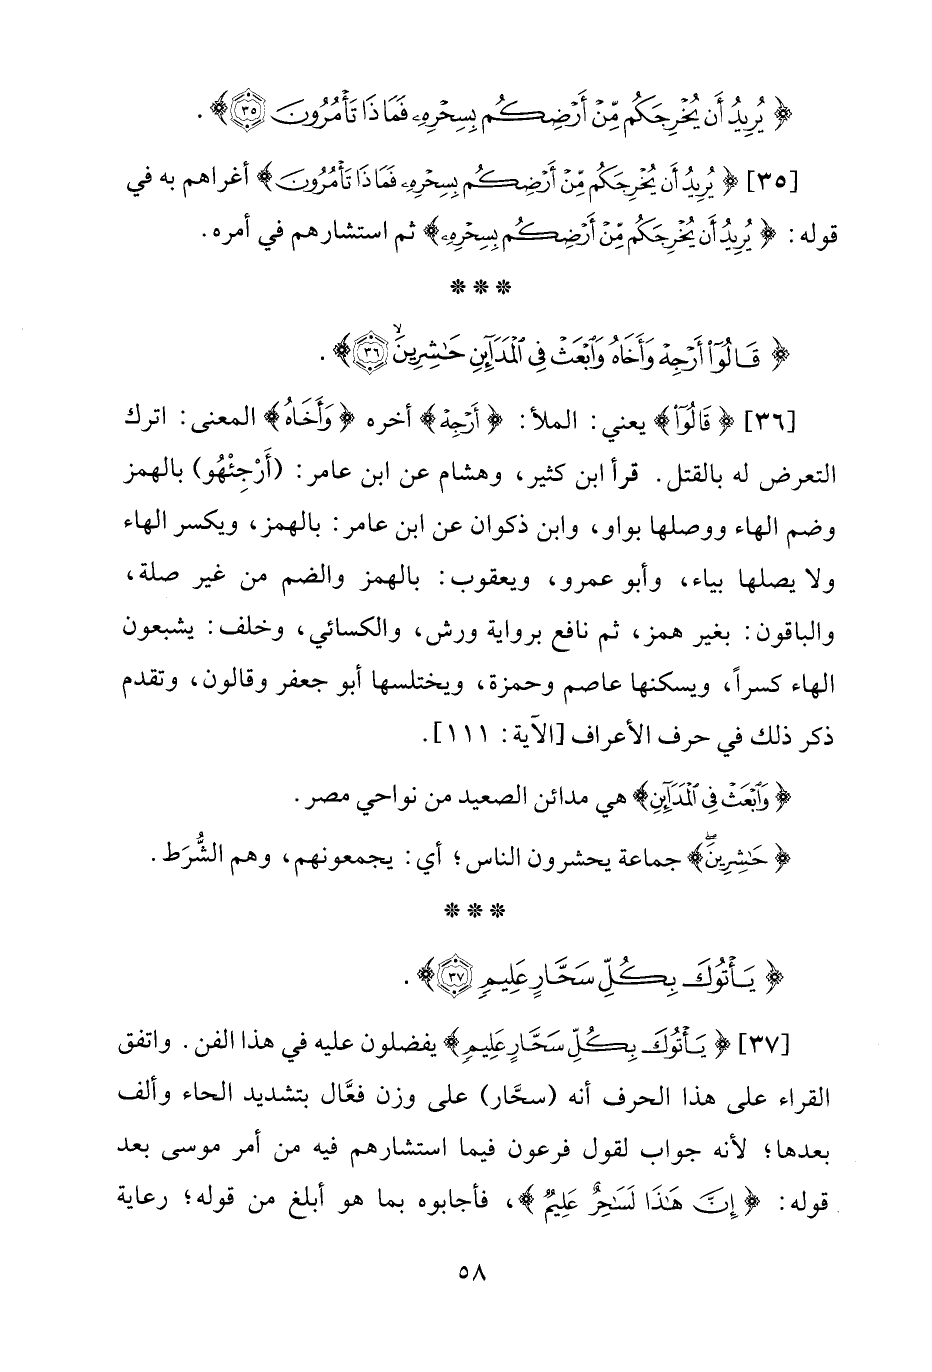 ﴿ يُرِيدُ أَن يُخْرِجَكُم مِّنْ أَرْضِكُم بِسِحْرِهِۦ فَمَاذَا تَأْمُرُونَ ٣٥ ﴾ .
[٣٥] ﴿ يُرِيدُ أَن يُخْرِجَكُم مِّنْ أَرْضِكُم بِسِحْرِهِۦ فَمَاذَا تَأْمُرُونَ ﴾ أغراهم به في
قوله: ﴿ يُرِيدُ أَن يُخْرِجَكُم مِّنْ أَرْضِكُم بِسِحْرِهِۦ ﴾ ثم استشارهم في أمره.
* * *
﴿ قَالُوٓا۟ أَرْجِهْ وَأَخَاهُ وَٱبْعَثْ فِى ٱلْمَدَآئِنِ حَٰشِرِينَ ۙ ٣٦ ﴾ .
[٣٦] ﴿ قَالُوٓا۟ ﴾ يعني: الملأ: ﴿ أَرْجِهْ ﴾ أخره ﴿ وَأَخَاهُ ﴾ المعنى: اترك
التعرض له بالقتل. قرأ ابن كثير، وهشام عن ابن عامر: (أَرْجِئْهُو) بالهمز
وضم الهاء ووصلها بواو، وابن ذكوان عن ابن عامر: بالهمز، ويكسر الهاء
ولا يصلها بياء، وأبو عمرو، ويعقوب: بالهمز والضم من غير صلة،
والباقون: بغير همز، ثم نافع برواية ورش، والكسائي، وخلف: يشبعون
الهاء كسراً، ويسكنها عاصم وحمزة، ويختلسها أبو جعفر وقالون، وتقدم
ذكر ذلك في حرف الأعراف [الآية: ١١١].
﴿ وَٱبْعَثْ فِى ٱلْمَدَآئِنِ ﴾ هي مدائن الصعيد من نواحي مصر.
﴿ حَٰشِرِينَ ۖ ﴾ جماعة يحشرون الناس؛ أي: يجمعونهم، وهم الشُّرَط.
* * *
﴿ يَأْتُوكَ بِكُلِّ سَحَّارٍ عَلِيمٍ ٣٧ ﴾ .
[٣٧] ﴿ يَأْتُوكَ بِكُلِّ سَحَّارٍ عَلِيمٍ ﴾ يفضلون عليه في هذا الفن. واتفق
القراء على هذا الحرف أنه (سحَّار) على وزن فعَّال بتشديد الحاء وألف
بعدها؛ لأنه جواب لقول فرعون فيما استشارهم فيه من أمر موسى بعد
قوله: ﴿ إِنَّ هَٰذَا لَسَٰحِرٌ عَلِيمٌ ﴾، فأجابوه بما هو أبلغ من قوله؛ رعاية
٥٨